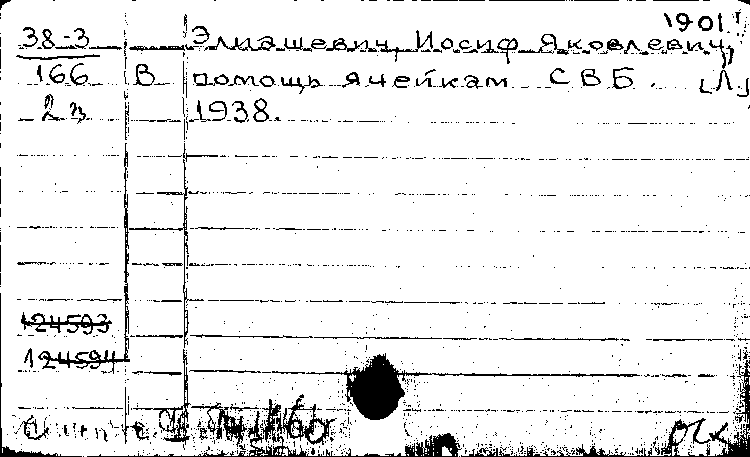 1901
38-3 Элиашевич, Иосиф Яковлевич,
166 В помощь ячейкам СВБ. [Л]
2 э 1938.
124593
124594